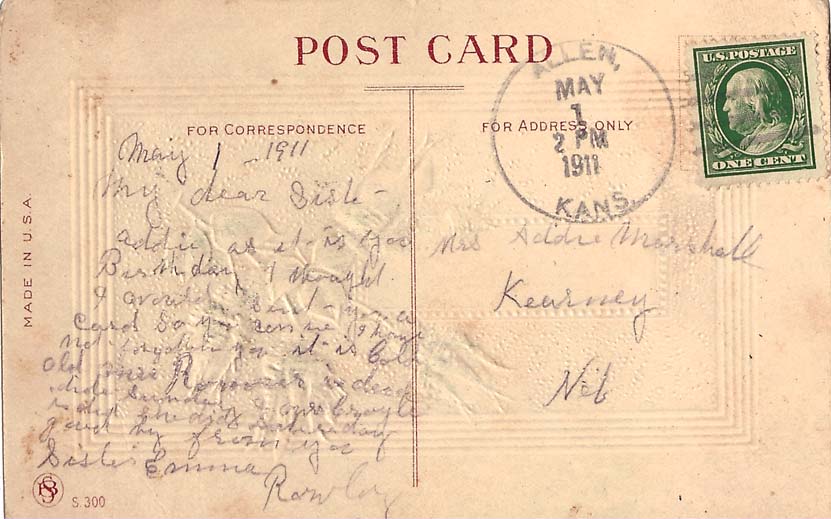 POST CARD
ALLEN,
MAY
1
2 PM
1911
KANS.
U.S. POSTAGE
ONE CENT
FOR CORRESPONDENCE
FOR ADDRESS ONLY
MADE IN U.S.A.
May 1 - 1911
My dear Siste-
addie as it is you
Birthday I thought
I would send you a
Card so you can see I have
not forgotten you it is cold
Old mrs is dead
Sunday & mrs
she died Saturday
good by from you
Sister Emma
Rowley
Mrs Addie Marshall
Kearney
Neb
S. 300